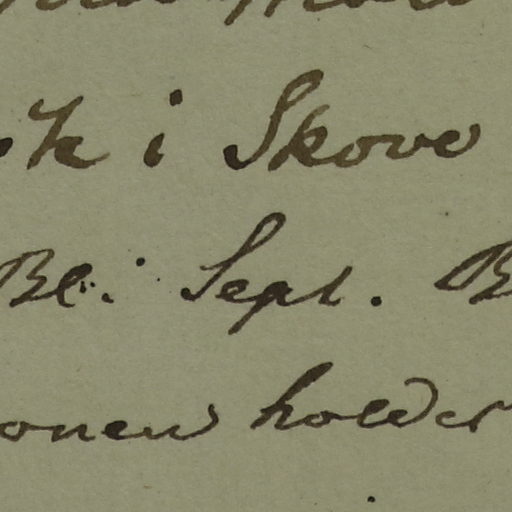 i Skove
Bl: Sept. B
onen holder